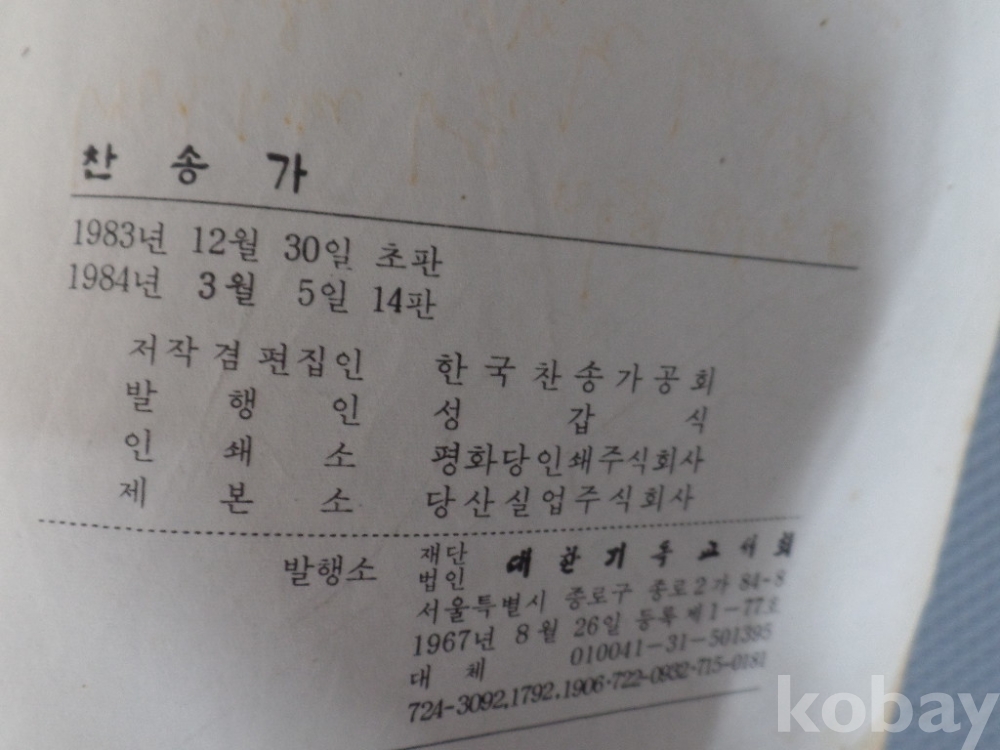 찬 송 가
1983년 12월 30일 초판
1984년 3월 5일 14판
저작 겸 편집인 한국찬송가공회
발 행 인 성 갑 식
인 쇄 소 평화당인쇄주식회사
제 본 소 당산실업주식회사
발행소 재단법인 대한기독교서회
서울특별시 종로구 종로2가 84-8
1967년 8월 26일 등록 제1-77호
대 체 010041-31-501395
724-3092,1792.1906·722-0932·715-0181
kobay